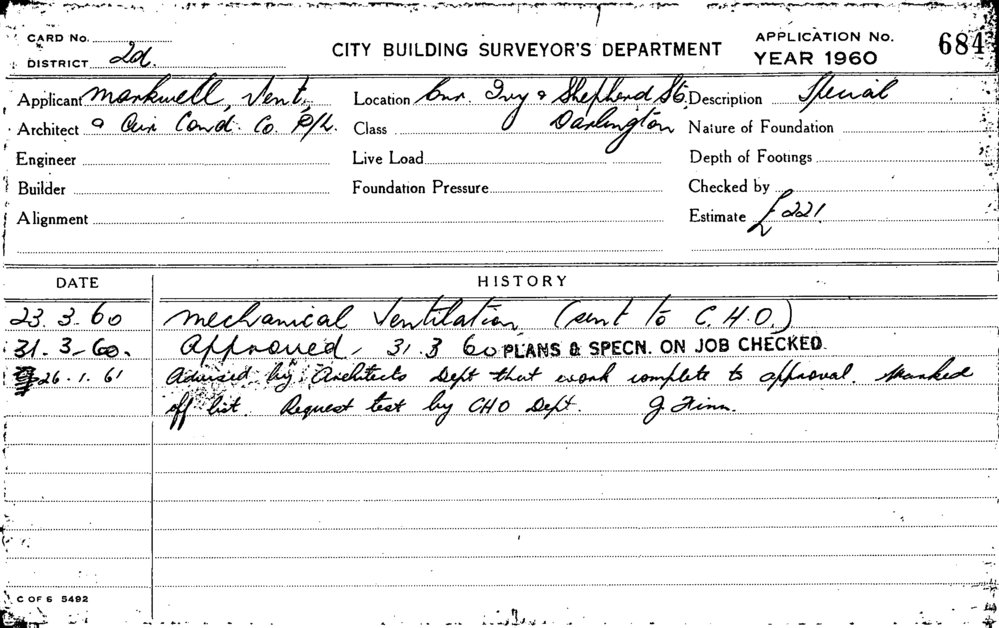 CARD No.
DISTRICT 2d.
CITY BUILDING SURVEYOR'S DEPARTMENT
APPLICATION No. 684
YEAR 1960
Applicant Markwell, Vent,
Location Cnr. Ivy & Shepherd St.
Description Special
Architect & Air Cond. Co. P/L.
Class Darlington
Nature of Foundation
Engineer
Live Load
Depth of Footings
Builder
Foundation Pressure
Checked by
Alignment
Estimate £221.
DATE HISTORY
23.3.60 Mechanical Ventilation (sent to C.H.O.)
31.3.60. Approved, 31.3.60 PLANS & SPECN. ON JOB CHECKED.
26.1.61 Advised by Architects Dept that work complete to approval. Marked
off list. Request test by CHO Dept. J Finn.
C OF S 5492